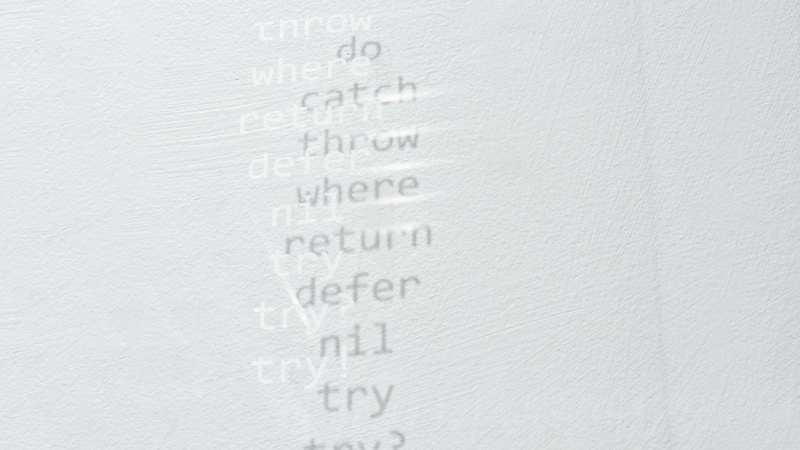 throw
where
return
defer
nil
try
try?
try!
do
catch
throw
where
return
defer
nil
try
try?